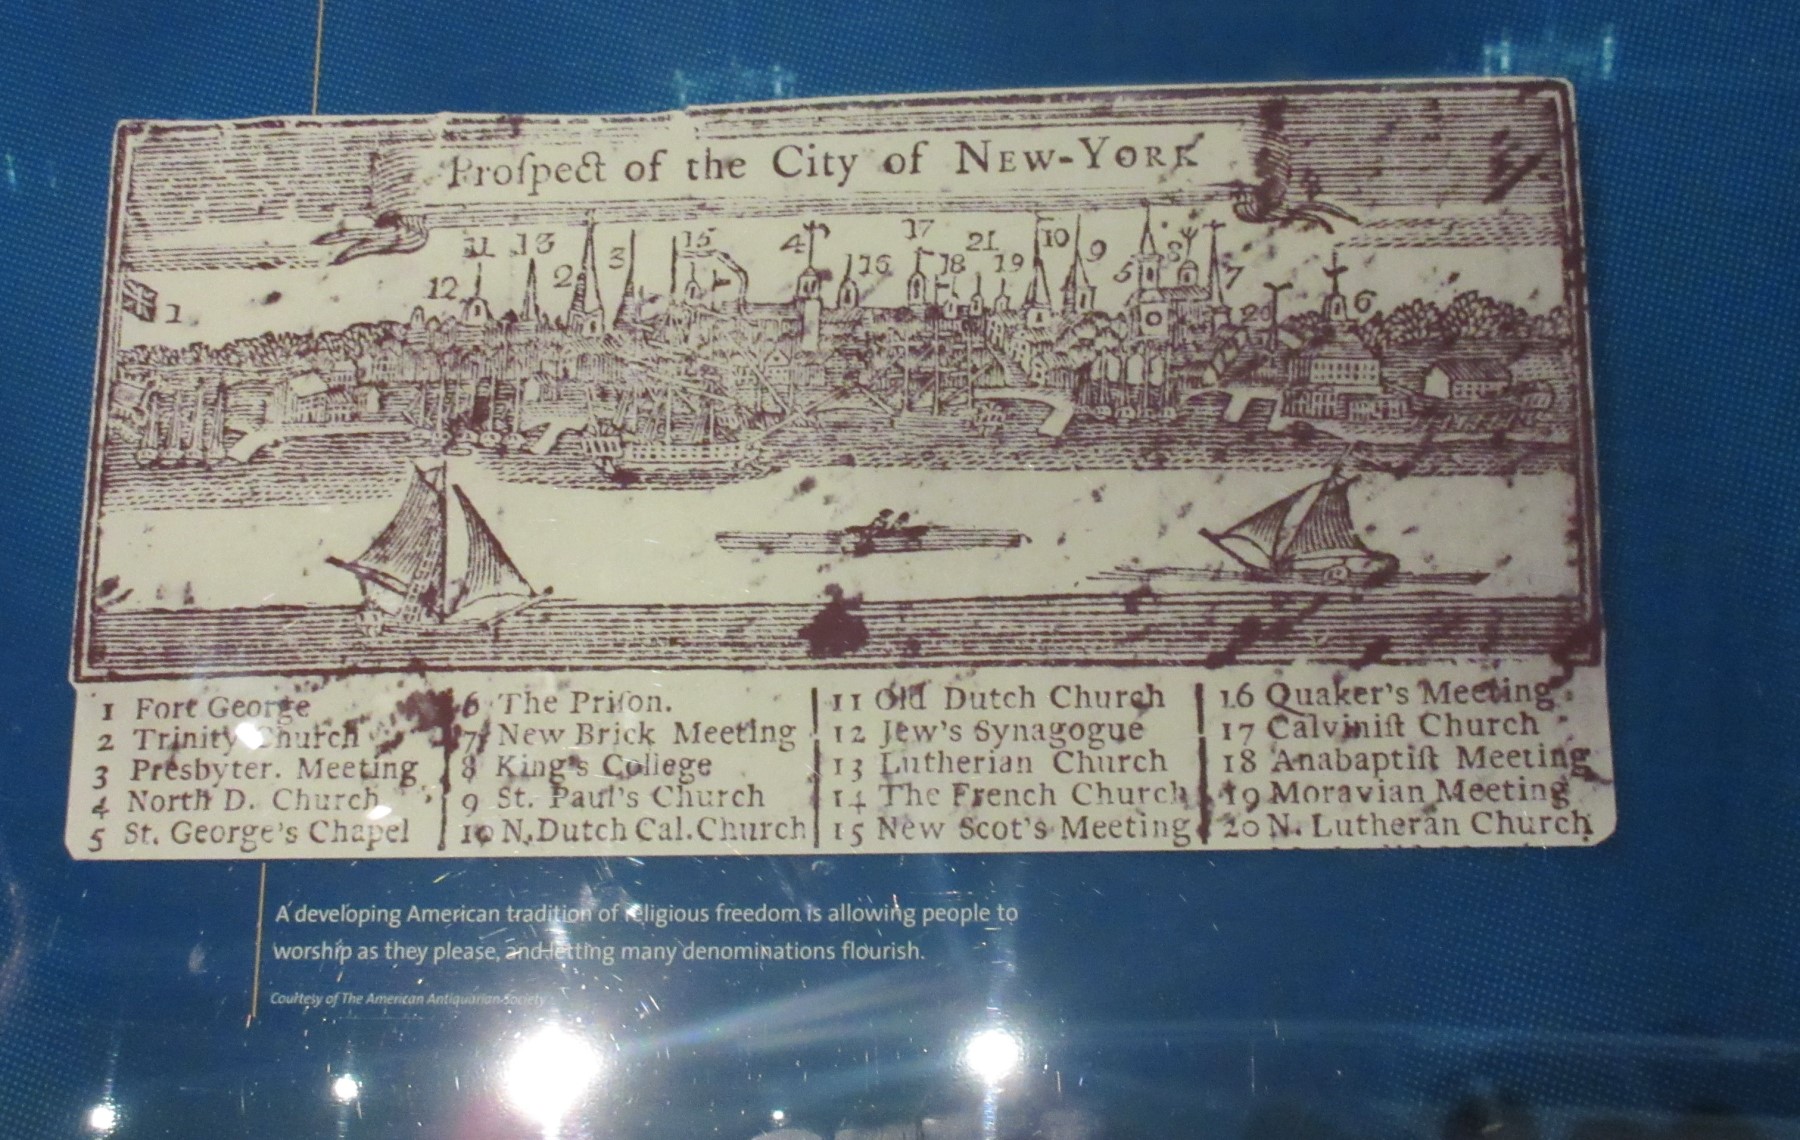 Proſpect of the City of NEW-YORK
11 13 2 3 15 4 17 16 18 21 19 10 9 5 8 7
12 1 20 6
1 Fort George
2 Trinity Church
3 Presbyter. Meeting
4 North D. Church
5 St. George's Chapel
6 The Priſon.
7 New Brick Meeting
8 King's College
9 St. Paul's Church
10 N.Dutch Cal.Church
11 Old Dutch Church
12 Jew's Synagogue
13 Lutherian Church
14 The French Church
15 New Scot's Meeting
16 Quaker's Meeting
17 Calviniſt Church
18 Anabaptiſt Meeting
19 Moravian Meeting
20 N. Lutheran Church
A developing American tradition of religious freedom is allowing people to
worship as they please, and letting many denominations flourish.
Courtesy of The American Antiquarian Society